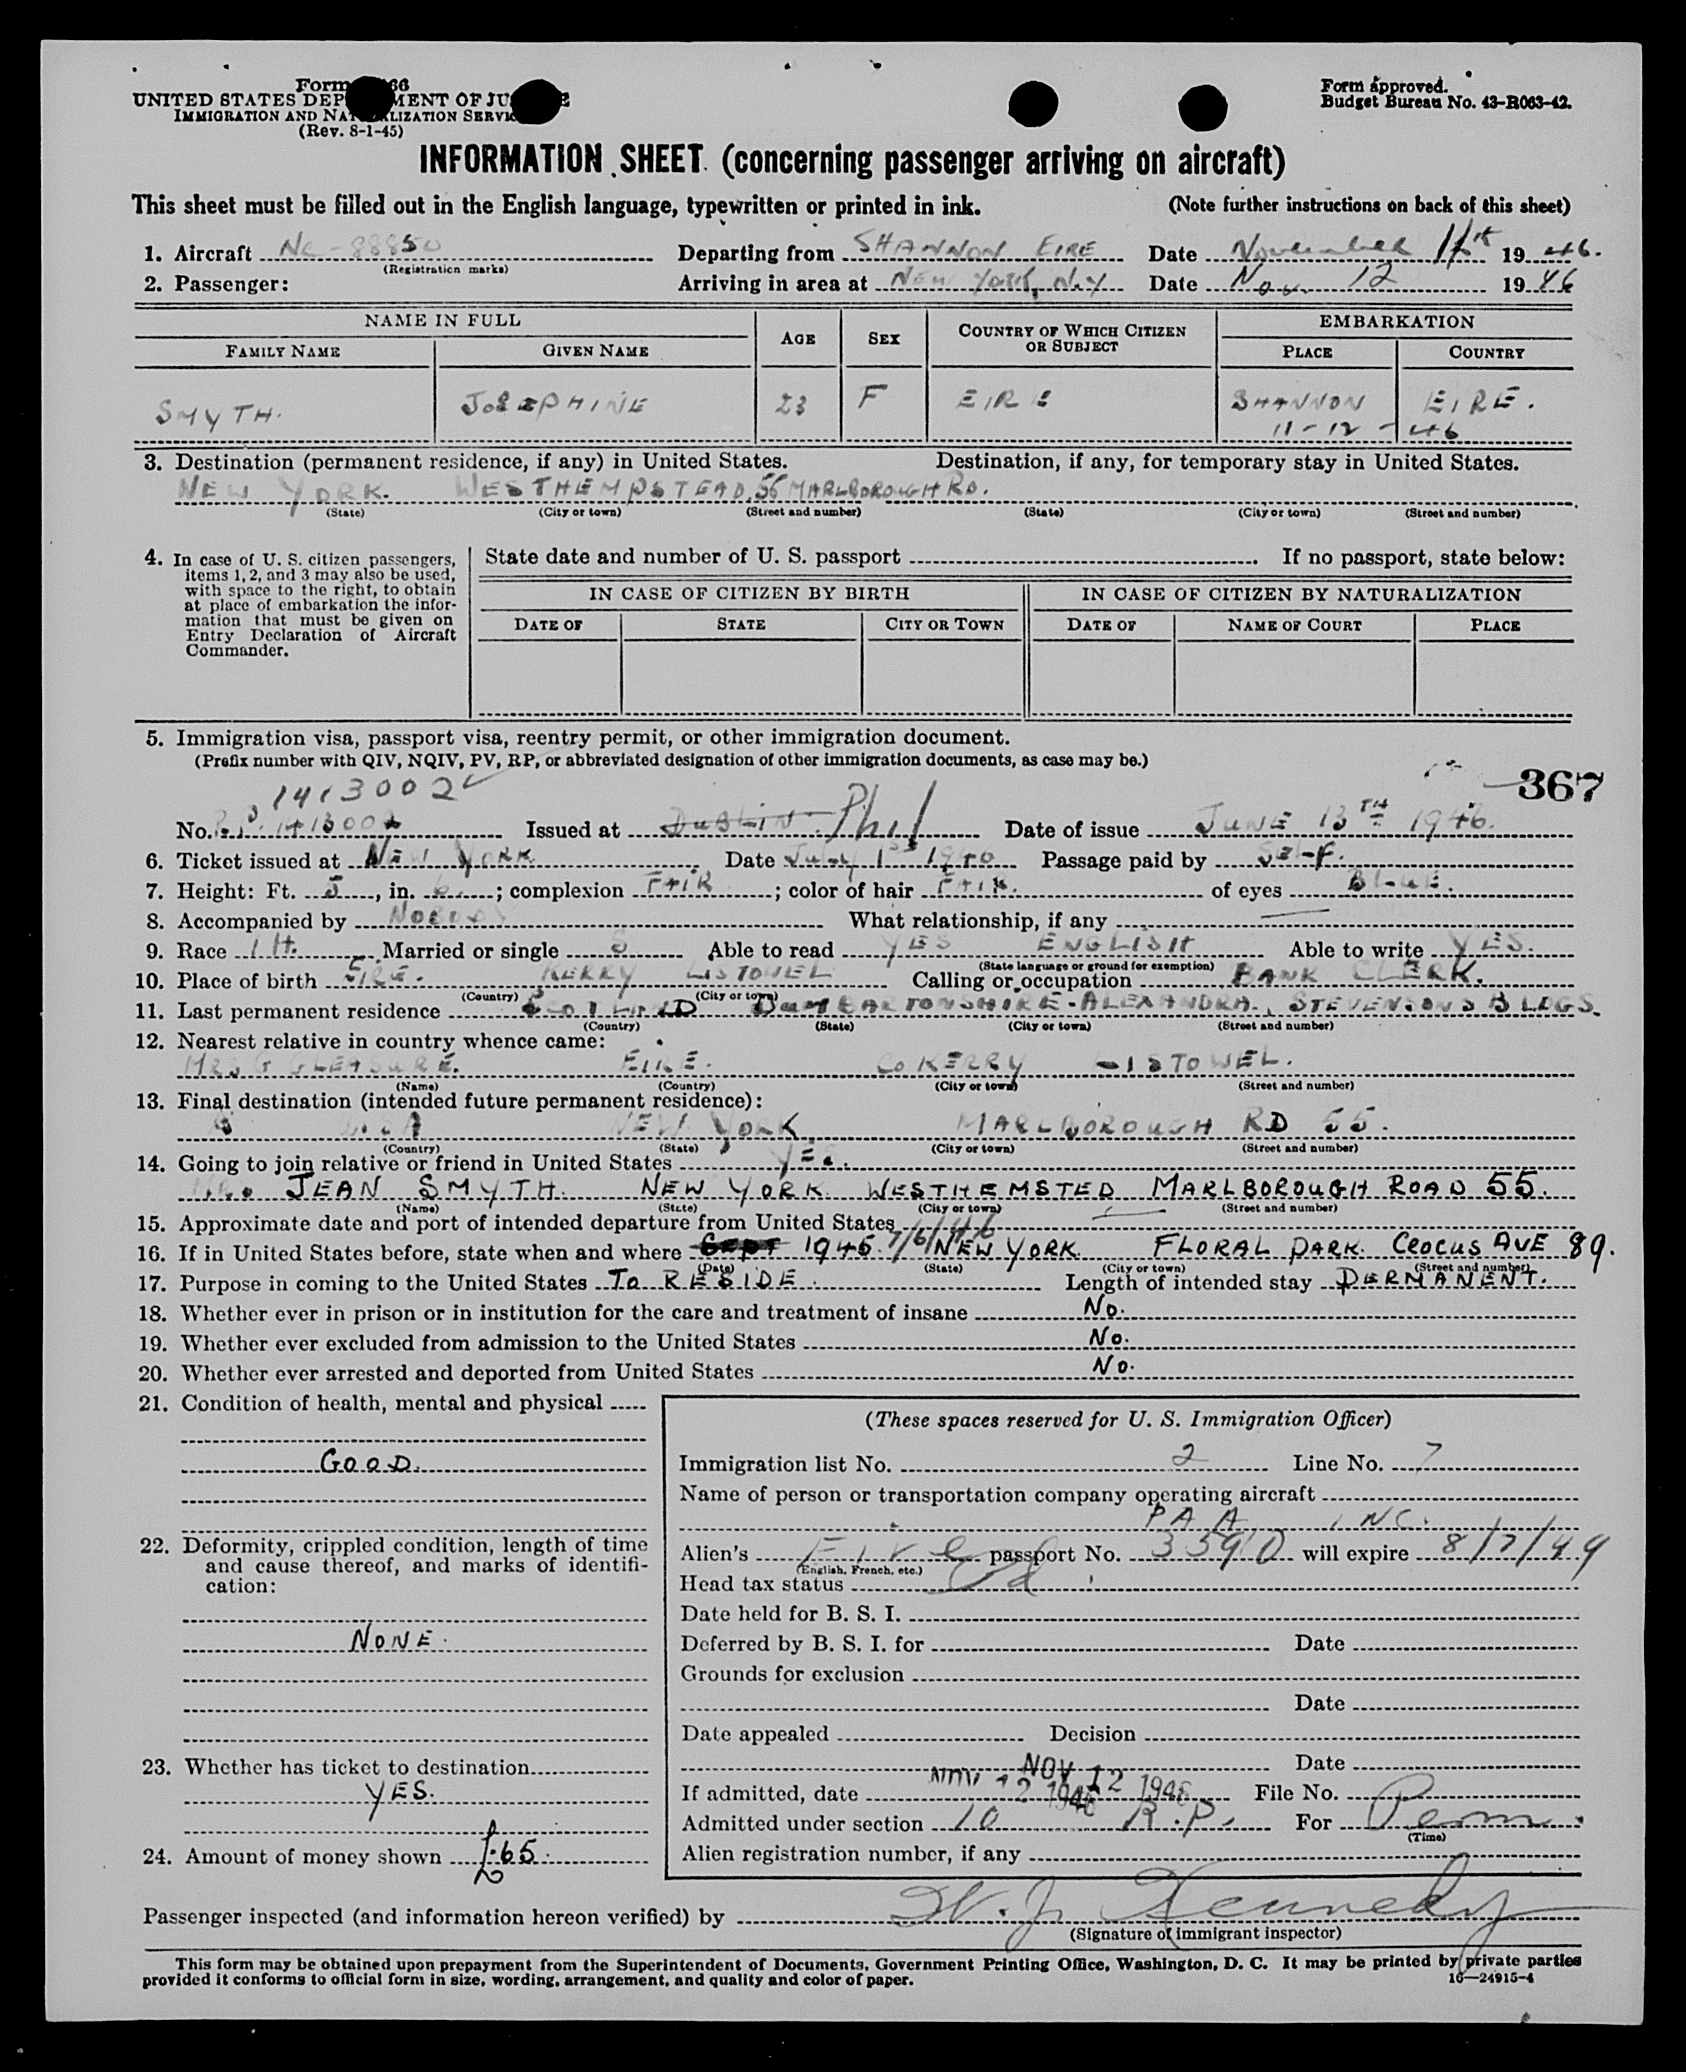 Form 66
UNITED STATES DEP MENT OF JU E
IMMIGRATION AND NAT LIZATION SERVI
(Rev. 8-1-45)
Form approved.
Budget Bureau No. 43-R063-42.
INFORMATION SHEET (concerning passenger arriving on aircraft)
This sheet must be filled out in the English language, typewritten or printed in ink. (Note further instructions on back of this sheet)
1. Aircraft NC-88850 Departing from SHANNON EIRE Date November 1946.
(Registration marks)
2. Passenger: Arriving in area at NEW YORK, N.Y Date Nov. 12 1946
NAME IN FULL AGE SEX COUNTRY OF WHICH CITIZEN OR SUBJECT EMBARKATION
FAMILY NAME GIVEN NAME PLACE COUNTRY
SMYTH. JOSEPHINE 23 F EIRE SHANNON EIRE.
11-12-46
3. Destination (permanent residence, if any) in United States. Destination, if any, for temporary stay in United States.
NEW YORK. WESTHEMPSTEAD. 55 MARLBOROUGH RD.
(State) (City or town) (Street and number) (State) (City or town) (Street and number)
4. In case of U. S. citizen passengers, items 1, 2, and 3 may also be used, with space to the right, to obtain at place of embarkation the information that must be given on Entry Declaration of Aircraft Commander.
State date and number of U. S. passport . If no passport, state below:
IN CASE OF CITIZEN BY BIRTH IN CASE OF CITIZEN BY NATURALIZATION
DATE OF STATE CITY OR TOWN DATE OF NAME OF COURT PLACE
5. Immigration visa, passport visa, reentry permit, or other immigration document.
(Prefix number with QIV, NQIV, PV, RP, or abbreviated designation of other immigration documents, as case may be.)
1413002 367
No. 1413002 Issued at DUBLIN Phil Date of issue JUNE 13TH 1946.
6. Ticket issued at NEW YORK Date July 1st Passage paid by SELF.
7. Height: Ft. 5, in. ; complexion FAIR; color of hair FAIR. of eyes BLUE.
8. Accompanied by NOBODY What relationship, if any —
9. Race IH. Married or single S Able to read YES ENGLISH Able to write YES.
(State language or ground for exemption)
10. Place of birth EIRE. KERRY LISTOWEL Calling or occupation BANK CLERK.
(Country) (City or town)
11. Last permanent residence SCOTLAND DUMBARTONSHIRE-ALEXANDRA. STEVENSONS BLDGS.
(Country) (State) (City or town) (Street and number)
12. Nearest relative in country whence came:
MRS G GLEASURE. EIRE. CO KERRY LISTOWEL.
(Name) (Country) (City or town) (Street and number)
13. Final destination (intended future permanent residence):
NEW YORK MARLBOROUGH RD 55.
(Country) (State) (City or town) (Street and number)
14. Going to join relative or friend in United States YES.
JEAN SMYTH. NEW YORK. WESTHEMSTED MARLBOROUGH ROAD 55.
(Name) (State) (City or town) (Street and number)
15. Approximate date and port of intended departure from United States —
16. If in United States before, state when and where 1945. 7/6/46 NEW YORK. FLORAL PARK. CROCUS AVE 89.
(Date) (State) (City or town) (Street and number)
17. Purpose in coming to the United States TO RESIDE. Length of intended stay PERMANENT.
18. Whether ever in prison or in institution for the care and treatment of insane No.
19. Whether ever excluded from admission to the United States No.
20. Whether ever arrested and deported from United States No.
21. Condition of health, mental and physical
GOOD.
22. Deformity, crippled condition, length of time and cause thereof, and marks of identification:
NONE.
23. Whether has ticket to destination
YES.
24. Amount of money shown £65.
(These spaces reserved for U. S. Immigration Officer)
Immigration list No. 2 Line No. 7
Name of person or transportation company operating aircraft
PAA, INC.
Alien's Eire passport No. 3390 will expire 8/7/49
(English, French, etc.)
Head tax status
Date held for B. S. I.
Deferred by B. S. I. for Date
Grounds for exclusion
Date
Date appealed Decision
Date
NOV 12 1946
If admitted, date NOV 12 1946 File No.
Admitted under section 10 R.P. For Perm.
(Time)
Alien registration number, if any
Passenger inspected (and information hereon verified) by W. J. Kennedy
(Signature of immigrant inspector)
This form may be obtained upon prepayment from the Superintendent of Documents, Government Printing Office, Washington, D. C. It may be printed by private parties
provided it conforms to official form in size, wording, arrangement, and quality and color of paper. 16—24915-4